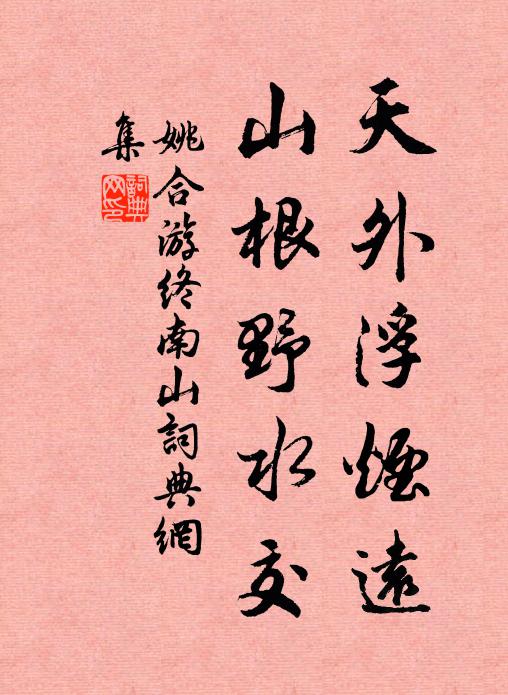 天外浮煙遠
山根野水交
姚合游终南山詞典網
集
詞典
网印